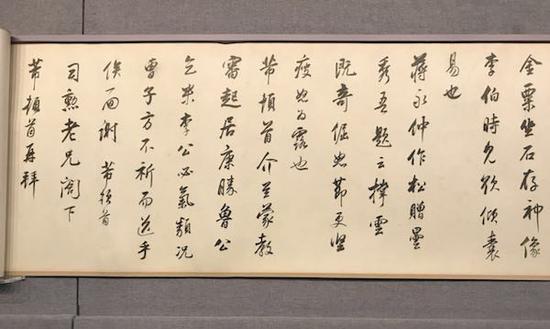 金粟坐石存神像
李伯時免欲傾囊
易也
蔣永仲作松贈曇
秀吾題云撐雲
既奇倔如節更堅
露也
芾頓首介至蒙教
審起居康勝魯公
乞米李公必氣類況
曹子方不祈而送乎
俟面謝 芾頓首
司勲老兄閣下
芾頓首再拜